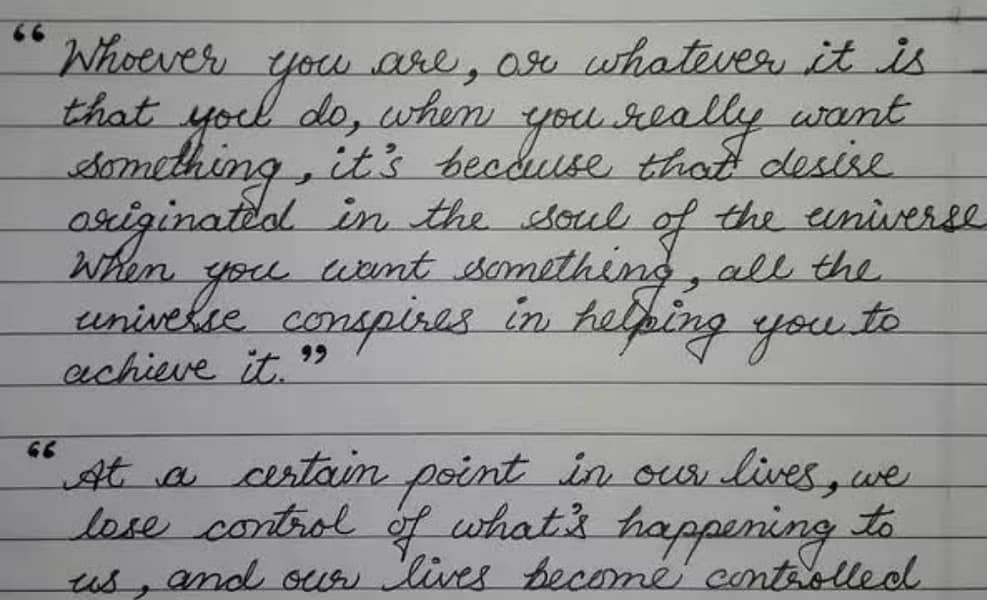 “ Whoever you are, or whatever it is
that you do, when you really want
something, it's because that desire
originated in the soul of the universe
When you want something, all the
universe conspires in helping you to
achieve it.”
“ At a certain point in our lives, we
lose control of what's happening to
us, and our lives become controlled